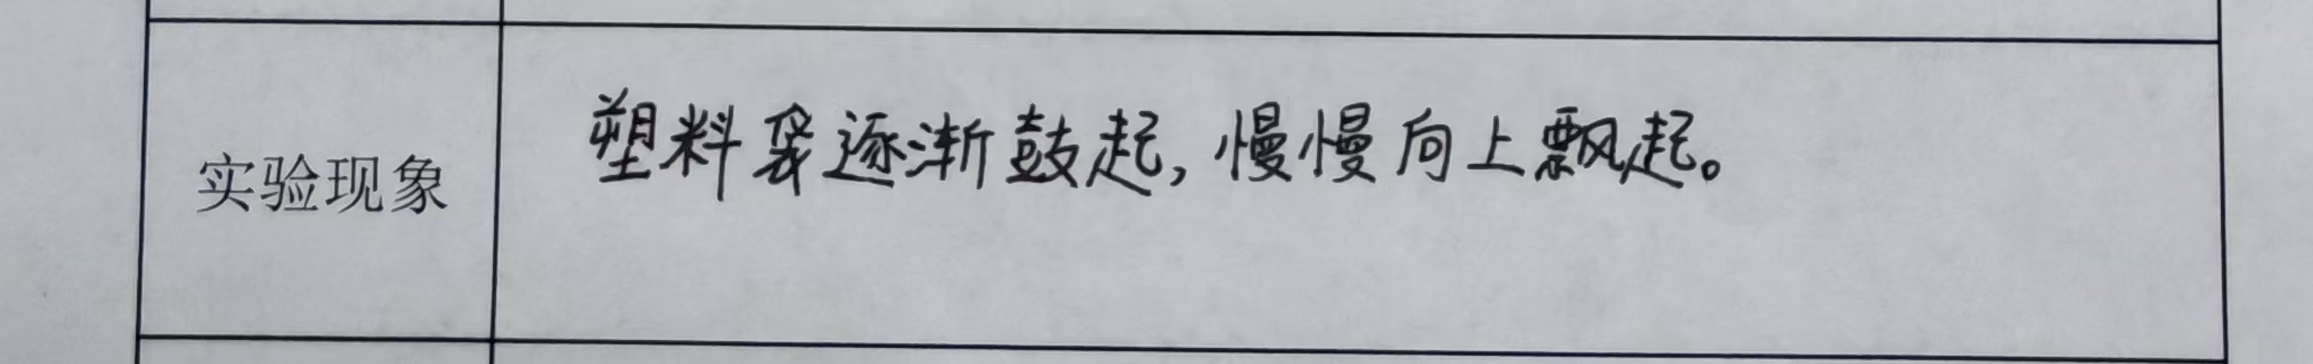 实验现象
塑料袋逐渐鼓起,慢慢向上飘起。